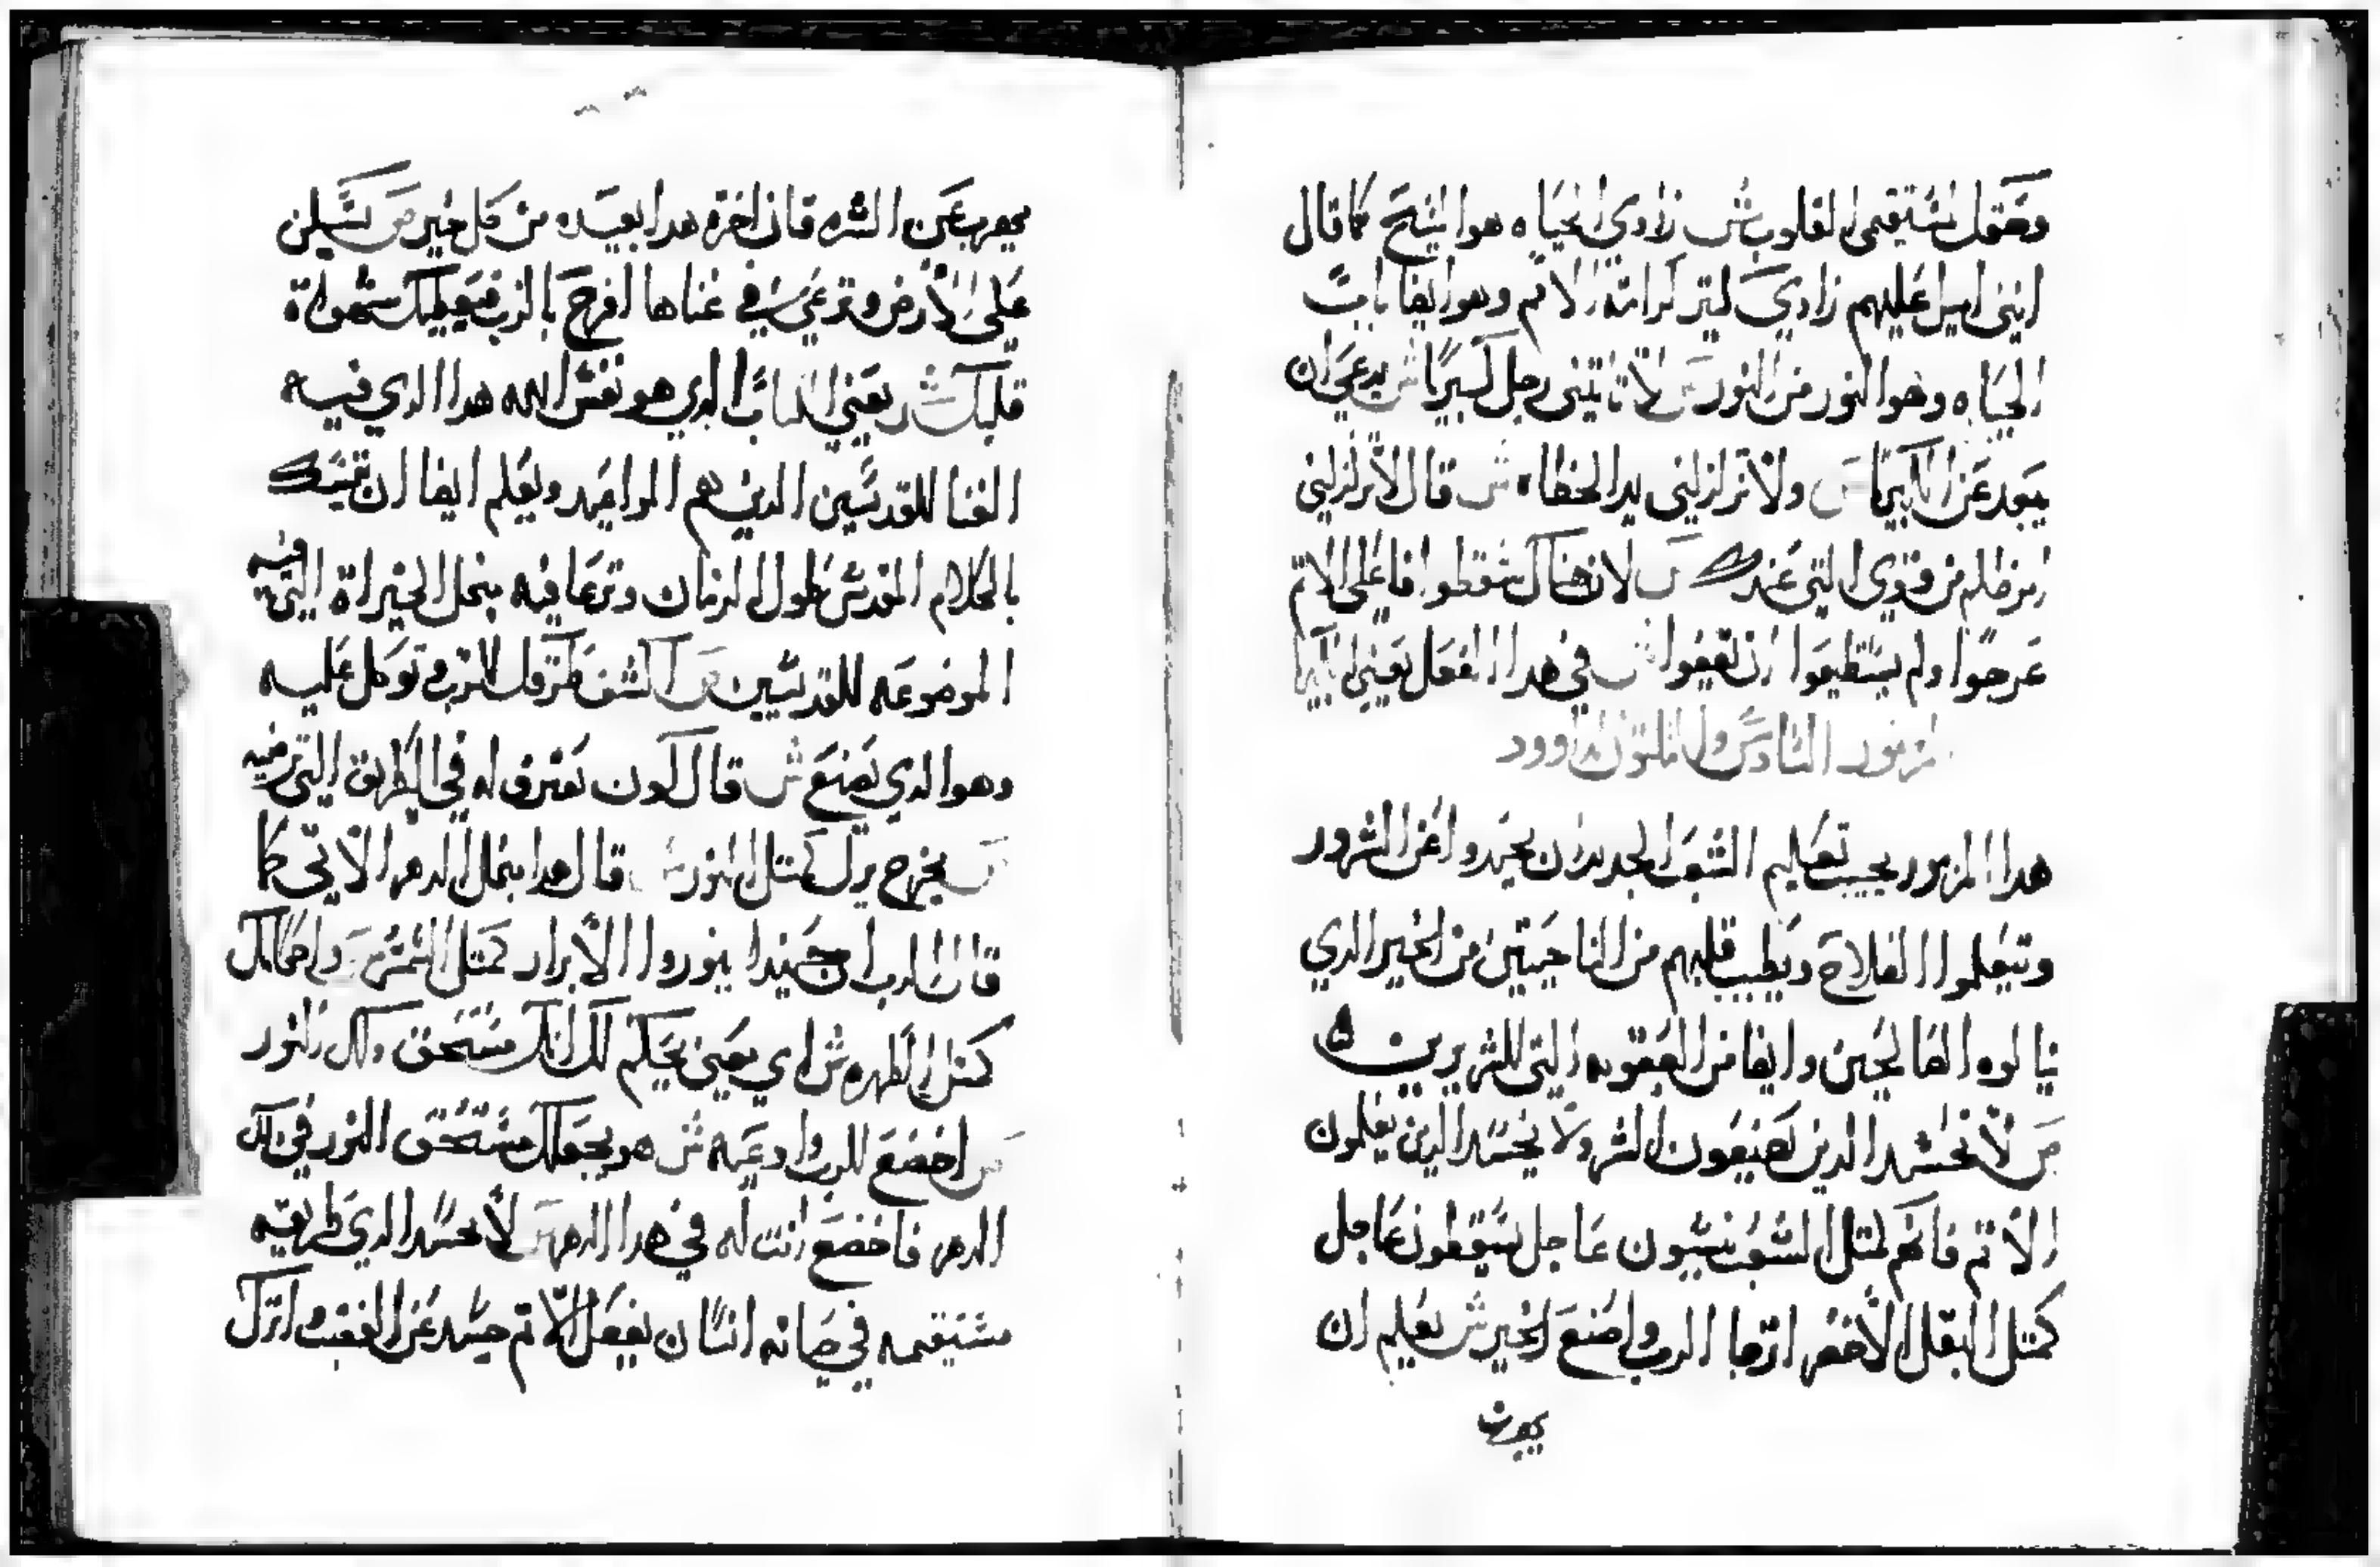 وحقك لمستقيمي القلوب ش زاوي الحياه هو المسيح كما قال
انني اميل عليهم زاوي لتر كرامة الامم وهو ايضا باب
الحياه وهو النور من النور ص لا تاتيني رجل الكبريا ش يدعي ان
يبعد عن الكبريا ص ولا تزلزلني يد الخطاه ش قال لا تزلزلني
من قوي التي عندك ص لان هناك سقطوا فاعلي الاتم
عرجوا ولم يستطيعوا ان يقفوا ش في هدا الفعل يعني الكبريا
المزمور السادس والتلتون لداوود
هدا المزمور يجيب تعليم الشعب الجديد ان يحيدوا عن الشرور
وتيعلموا الفلاح ويطيب قلبهم من الناحيتين من الخير الدي
ينالوه الصالحين وايضا من العقوبه التي للشريرين
ص لا تحسد الدين يصنعون الشر ولا تحسد الدين يعملون
الاتم فانهم كمتل العشب ييبسون عاجل يسقطون عاجل
كمتل البقل الاخضر اترجا الرب واصنع الخير ش يعليم ان
يهرب
يهرب عن الشر فان اخرة هدا بعيده من كل خير ص تسكن
علي الارض وترعي في غناها افرح بالرب فيعطيك شهواة
قلبك ش يعني الكتاب الدي هو نفس الله هدا الدي فيه
الغنا للقديسين الدين هم المواعيد ويعلم ايضا ان تقيتك
بالكلام المقدس طول الزمان وترعا فيه بتحل الخيراة التي فيه
الموضوعه للقديسين ص اكشف طرقك للرب وتوكل عليه
وهو الدي يصنع ش قال لكون تعترف له في الطريق التي ترضيه
ص يخرج برك كمتل النور ش قال هدا بتمل الدهر الاتي كما
قال الرب احينيدا ينوروا الابرار كمتل الشمس ص واحكامك
كمتل الظهره ش اي يعني يحكم لك انك مستحق دلك النور
ص اخضع للرب وادعيه ش هو يجعلك مستحق النور في دلك
الدهر فاخضع انت له في هدا الدهر ص لا تحسد الدي طريقه
مستقيمه في حياته انسان يفعل الاتم حيد عن الغضب واترك